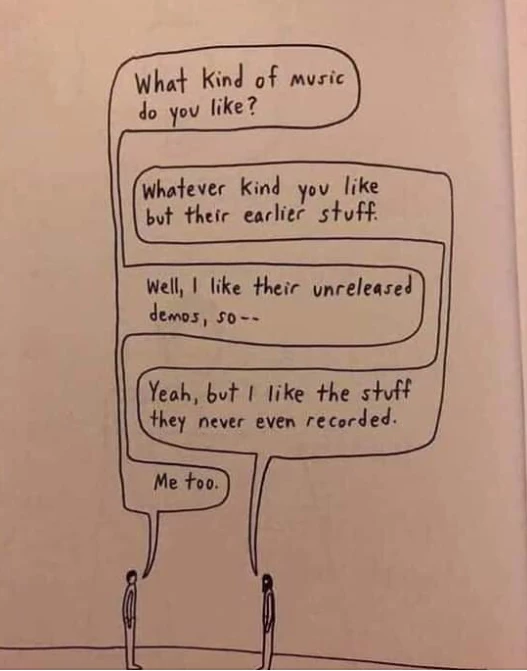 What kind of music
do you like?
Whatever kind you like
but their earlier stuff.
Well, I like their unreleased
demos, so--
Yeah, but I like the stuff
they never even recorded.
Me too.